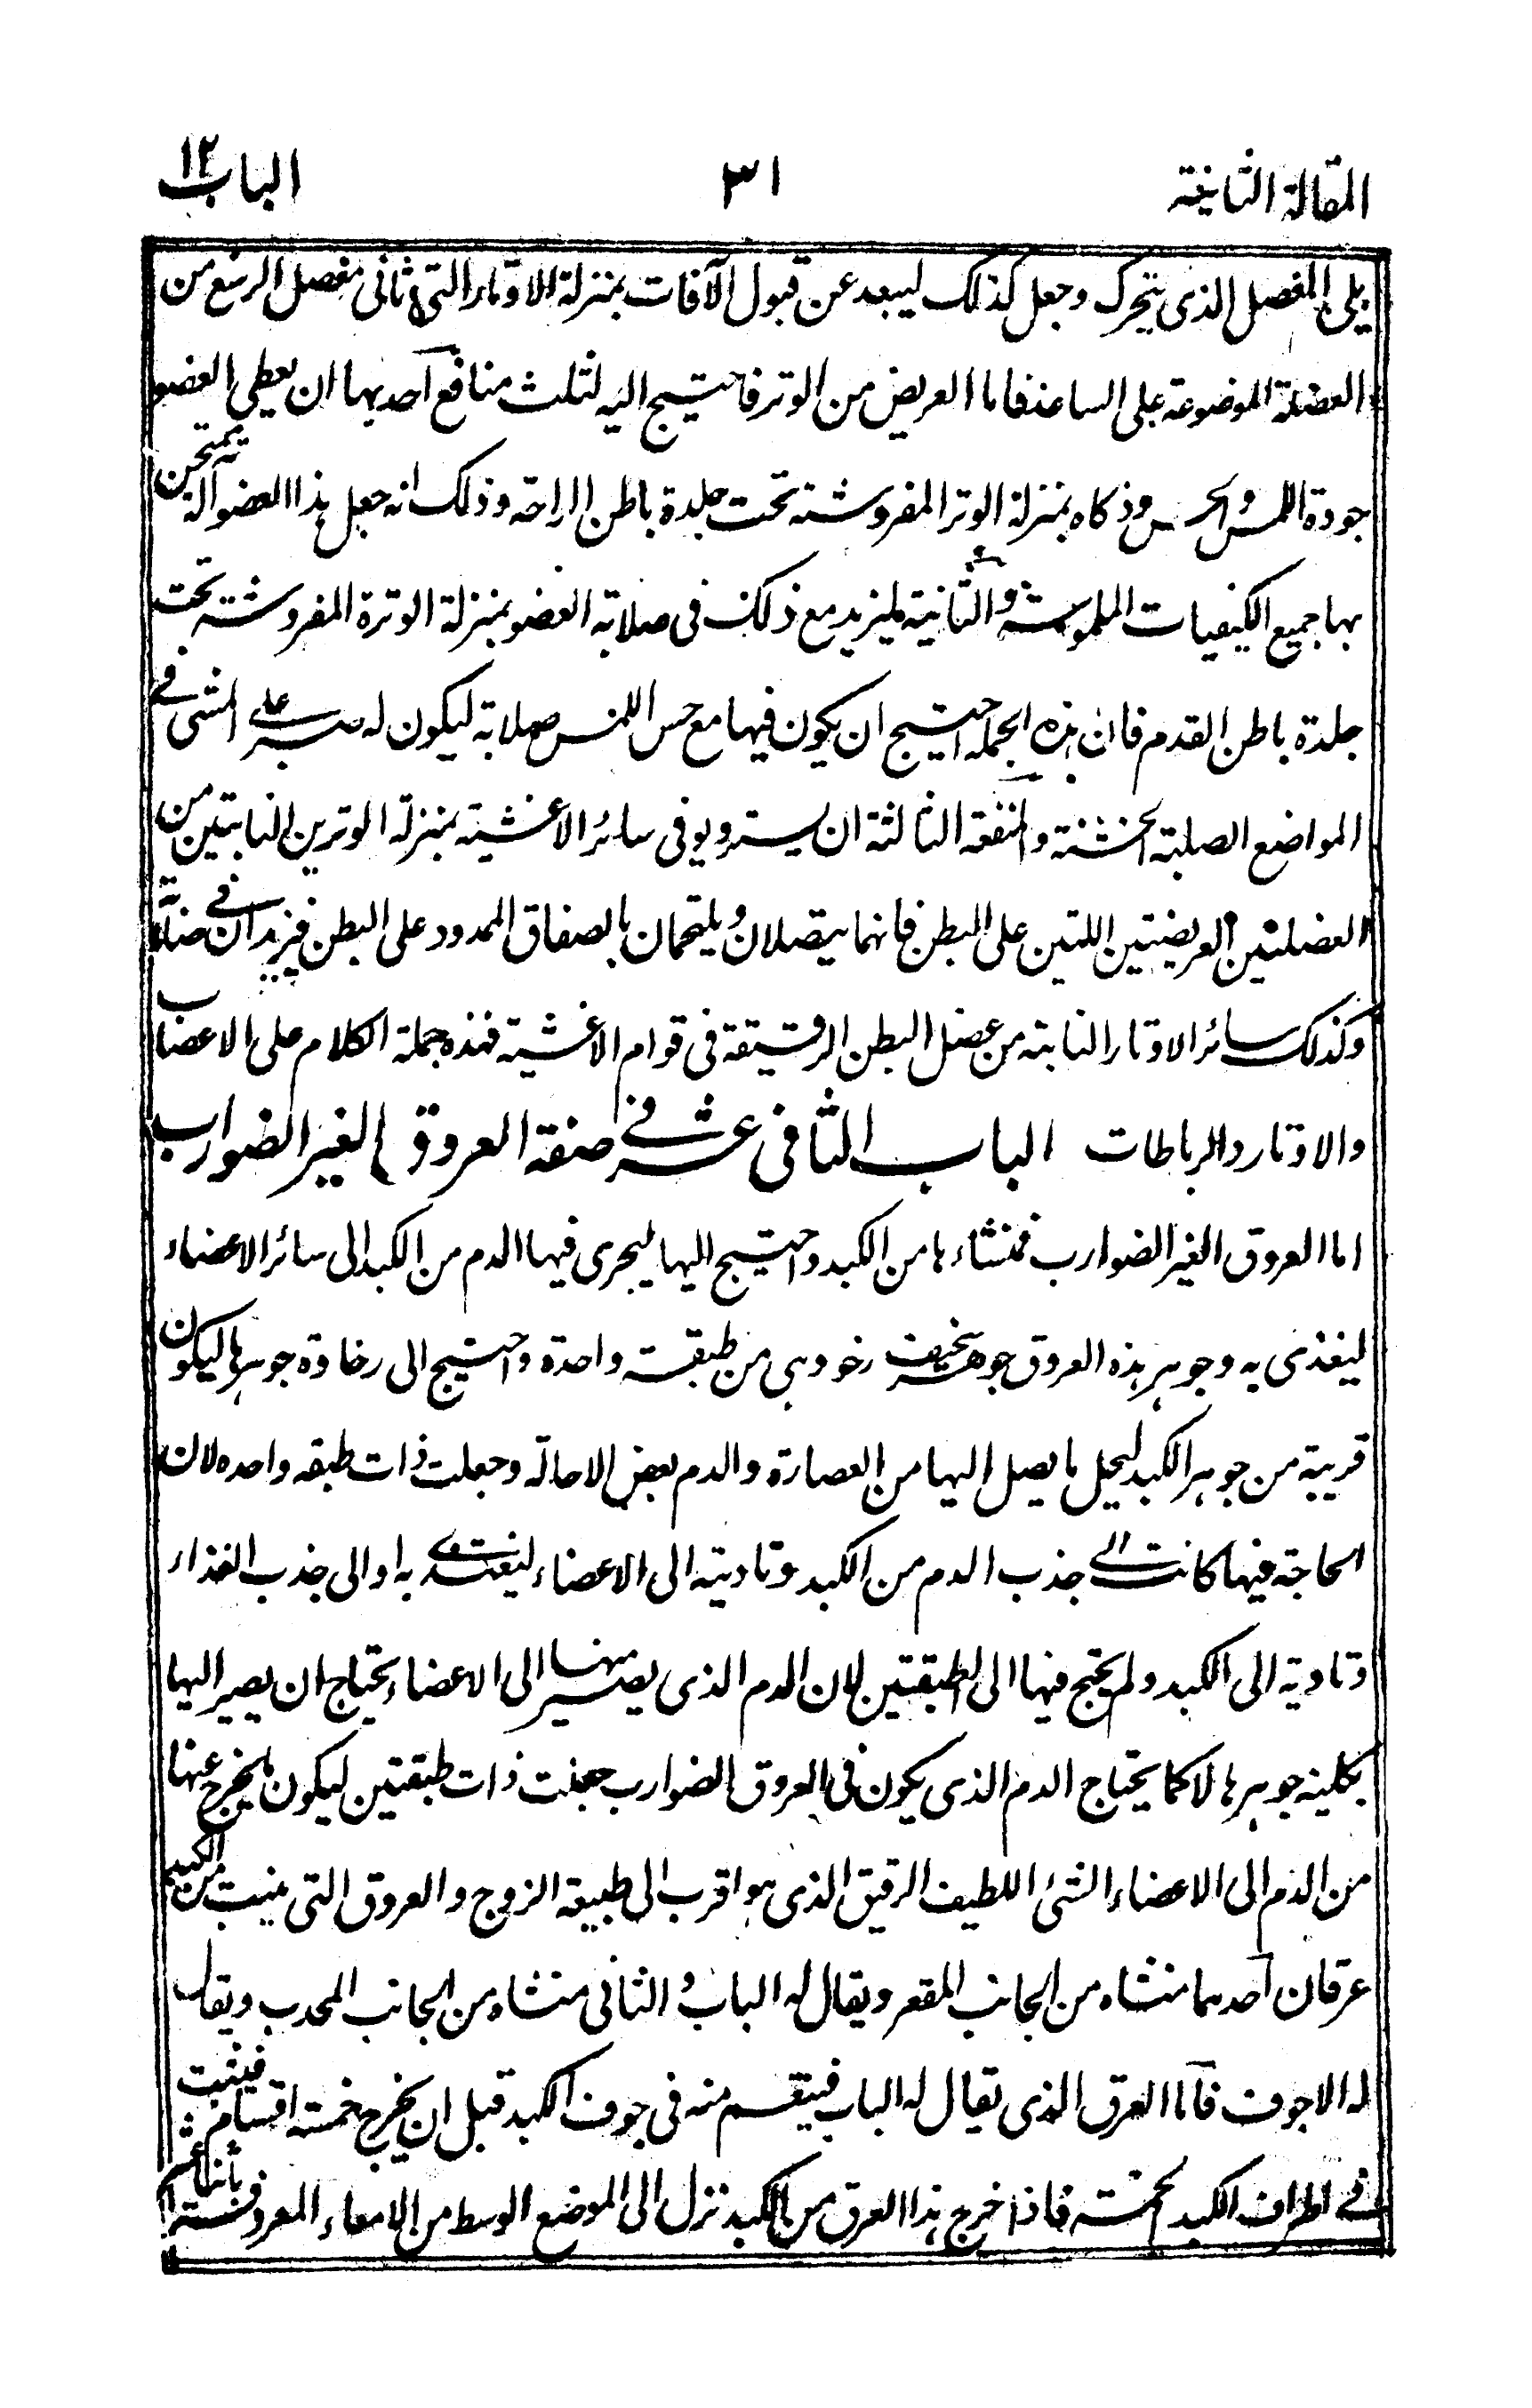 المقالة الثانية ٣١ الباب ١٢
يلى المفصل الذى يتحرك وجعل كذلك ليبعد عن قبول الآفات بمنزلة الاوتار التى ثانى مفصل الرسغ من
العضلة الموضوعة على الساعد فاما العريض من الوتر فاحتيج اليه لثلث منافع احدیہا ان يعطى العضو
جودة اللمس والحس وذكاه بمنزلة الوتر المفروشة تحت جلدة باطن الراحة وذلك انه جعل ہذا العضو آلة يمتحن
بہا جميع الكيفيات الملموسة والثانية ليزيد مع ذلك فى صلابة العضو بمنزلة الوترة المفروشة تحت
جلدة باطن القدم فان ہذه الجملة احتيج ان يكون فيہا مع حس اللمس صلابة ليكون له صبر على المشى فى
المواضع الصلبة الخشنة والمنفعة الثالثة ان يستر ويوفى سائر الاغشية بمنزلة الوترين النابتين من
العضلتين العريضتين اللتين على البطن فانہما يتصلان ويلتحمان بالصفاق الممدود على البطن فيزيدان فى صلابته
وكذلك سائر الاوتار النابتة من عضل البطن الرقيقة فى قوام الاغشية فہذه جملة الكلام على الاعصاب
والاوتار والرباطات الباب الثانى عشر فى صفة العروق الغير الضوارب
اما العروق الغير الضوارب فمنشاءہا من الكبد واحتيج اليہا ليجرى فيہا الدم من الكبد الى سائر الاعضاء
ليغذى به وجوہر ہذه العروق جوہر سخيف رخو وہى من طبقة واحدة واحتيج الى رخاوة جوہرہا ليكون
قريبة من جوہر الكبد ليحيل ما يصل اليہا من العصارة والدم بعض الاحالة وجعلت ذات طبقه واحده لان
الحاجة فيہا كانت الى جذب الدم من الكبد وتاديته الى الاعضاء ليغتذى به او الى جذب الغذاء
وتاديته الى الكبد ولم يحتج فيہا الى طبقتين لان الدم الذى يصير منہا الى الاعضاء يحتاج ان يصير اليہا
بكلية جوہرہا لا كما يحتاج الدم الذى يكون فى العروق الضوارب جعلت ذات طبقتين ليكون ما يخرج عنہا
من الدم الى الاعضاء الشئ اللطيف الرقيق الذى ہو اقرب الى طبيعة الروح والعروق التى ينبت من الكبد
عرقان احدہما منشاه من الجانب المقعر ويقال له الباب والثانى منشاه من الجانب المحدب ويقال
له الاجوف فاما العرق الذى يقال له الباب فينقسم منه فى جوف الكبد قبل ان يخرج خمسة اقسام فينبت
فى اطراف الكبد الخمسة فاذا خرج ہذا العرق من الكبد نزل الى الموضع الوسط من الامعاء المعروفة باثنا عشر